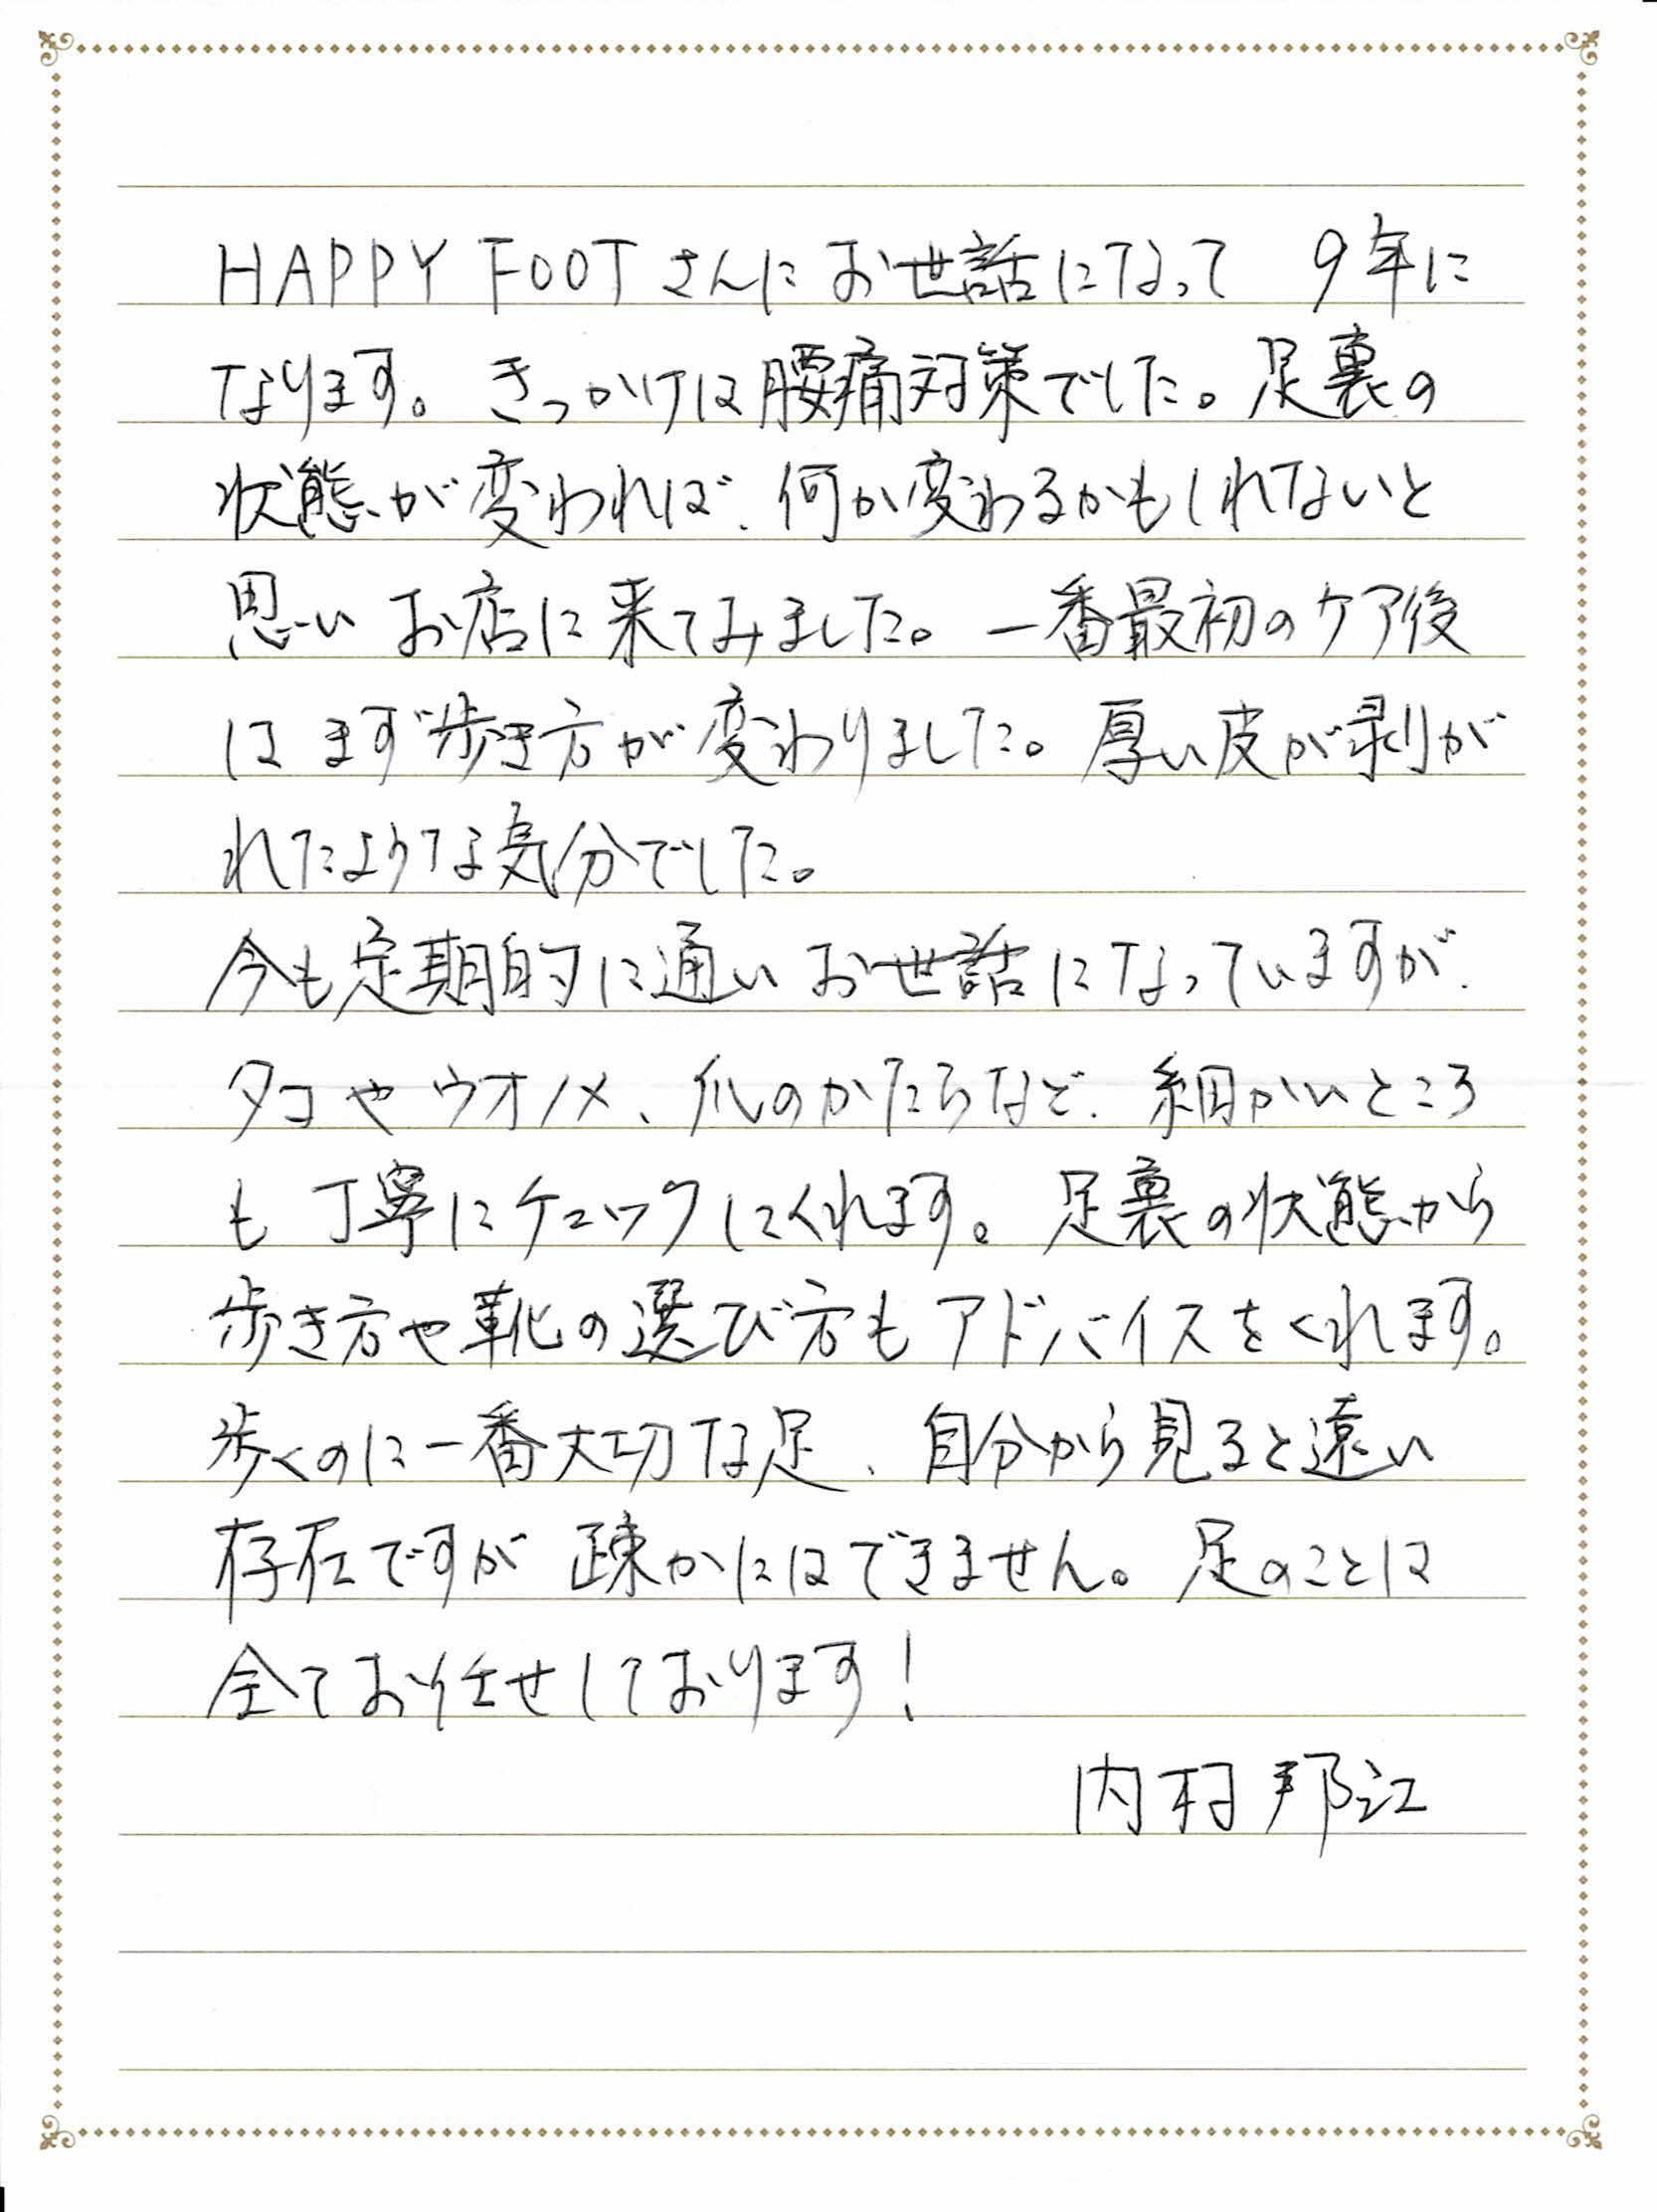 HAPPY FOOTさんにお世話になって 9年に
なります。きっかけは腰痛対策でした。足裏の
状態が変われば、何か変わるかもしれないと
思い お店に来てみました。一番最初のケア後
は まず歩き方が変わりました。厚い皮が剥が
れたような気分でした。
今も定期的に通い お世話になっていますが、
タコやウオノメ、爪のかたちなど、細かいところ
も 丁寧にチェックしてくれます。足裏の状態から
歩き方や靴の選び方も アドバイスをくれます。
歩くのに一番大切な足、自分から見ると遠い
存在ですが 疎かにはできません。足のことは
全てお任せしております!
内村 邦江